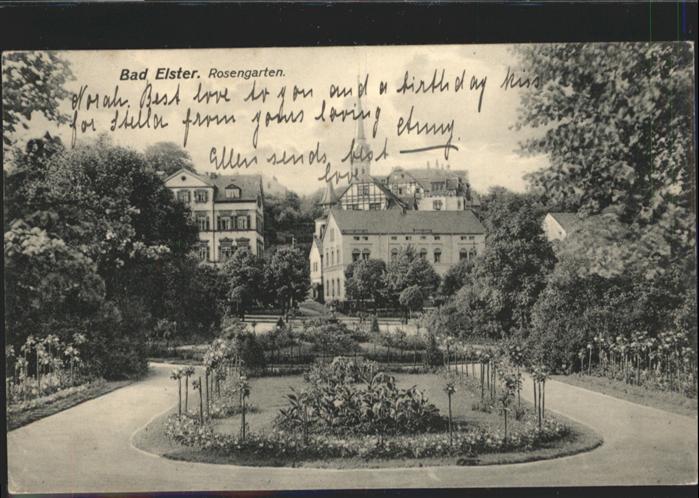 Bad Elster. Rosengarten.
Norah. Best love to you and a birthday kiss
for Stella from yours loving
Ellen sends best
love